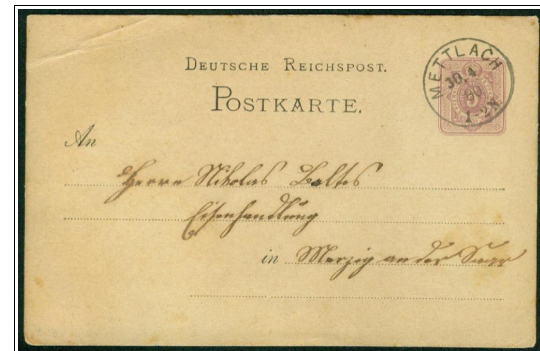 DEUTSCHE REICHSPOST.
POSTKARTE.
METTLACH
30.4
80
1-2N
5
An
Herrn Nikolas Baltes
Eisenhandlung
in Merzig an der Saar